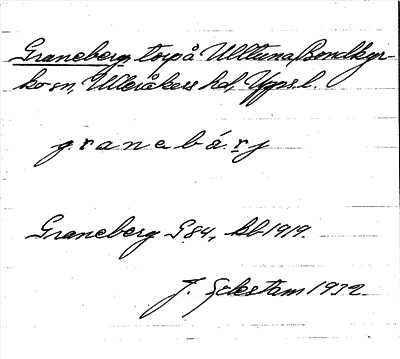 Graneberg, torp å Ulltuna, Bondkyr-
ko sn, Ulleråkers hd, Upps.l.
granebárj
Graneberg S 84, kb 1919.
J. Sahlstam 1932